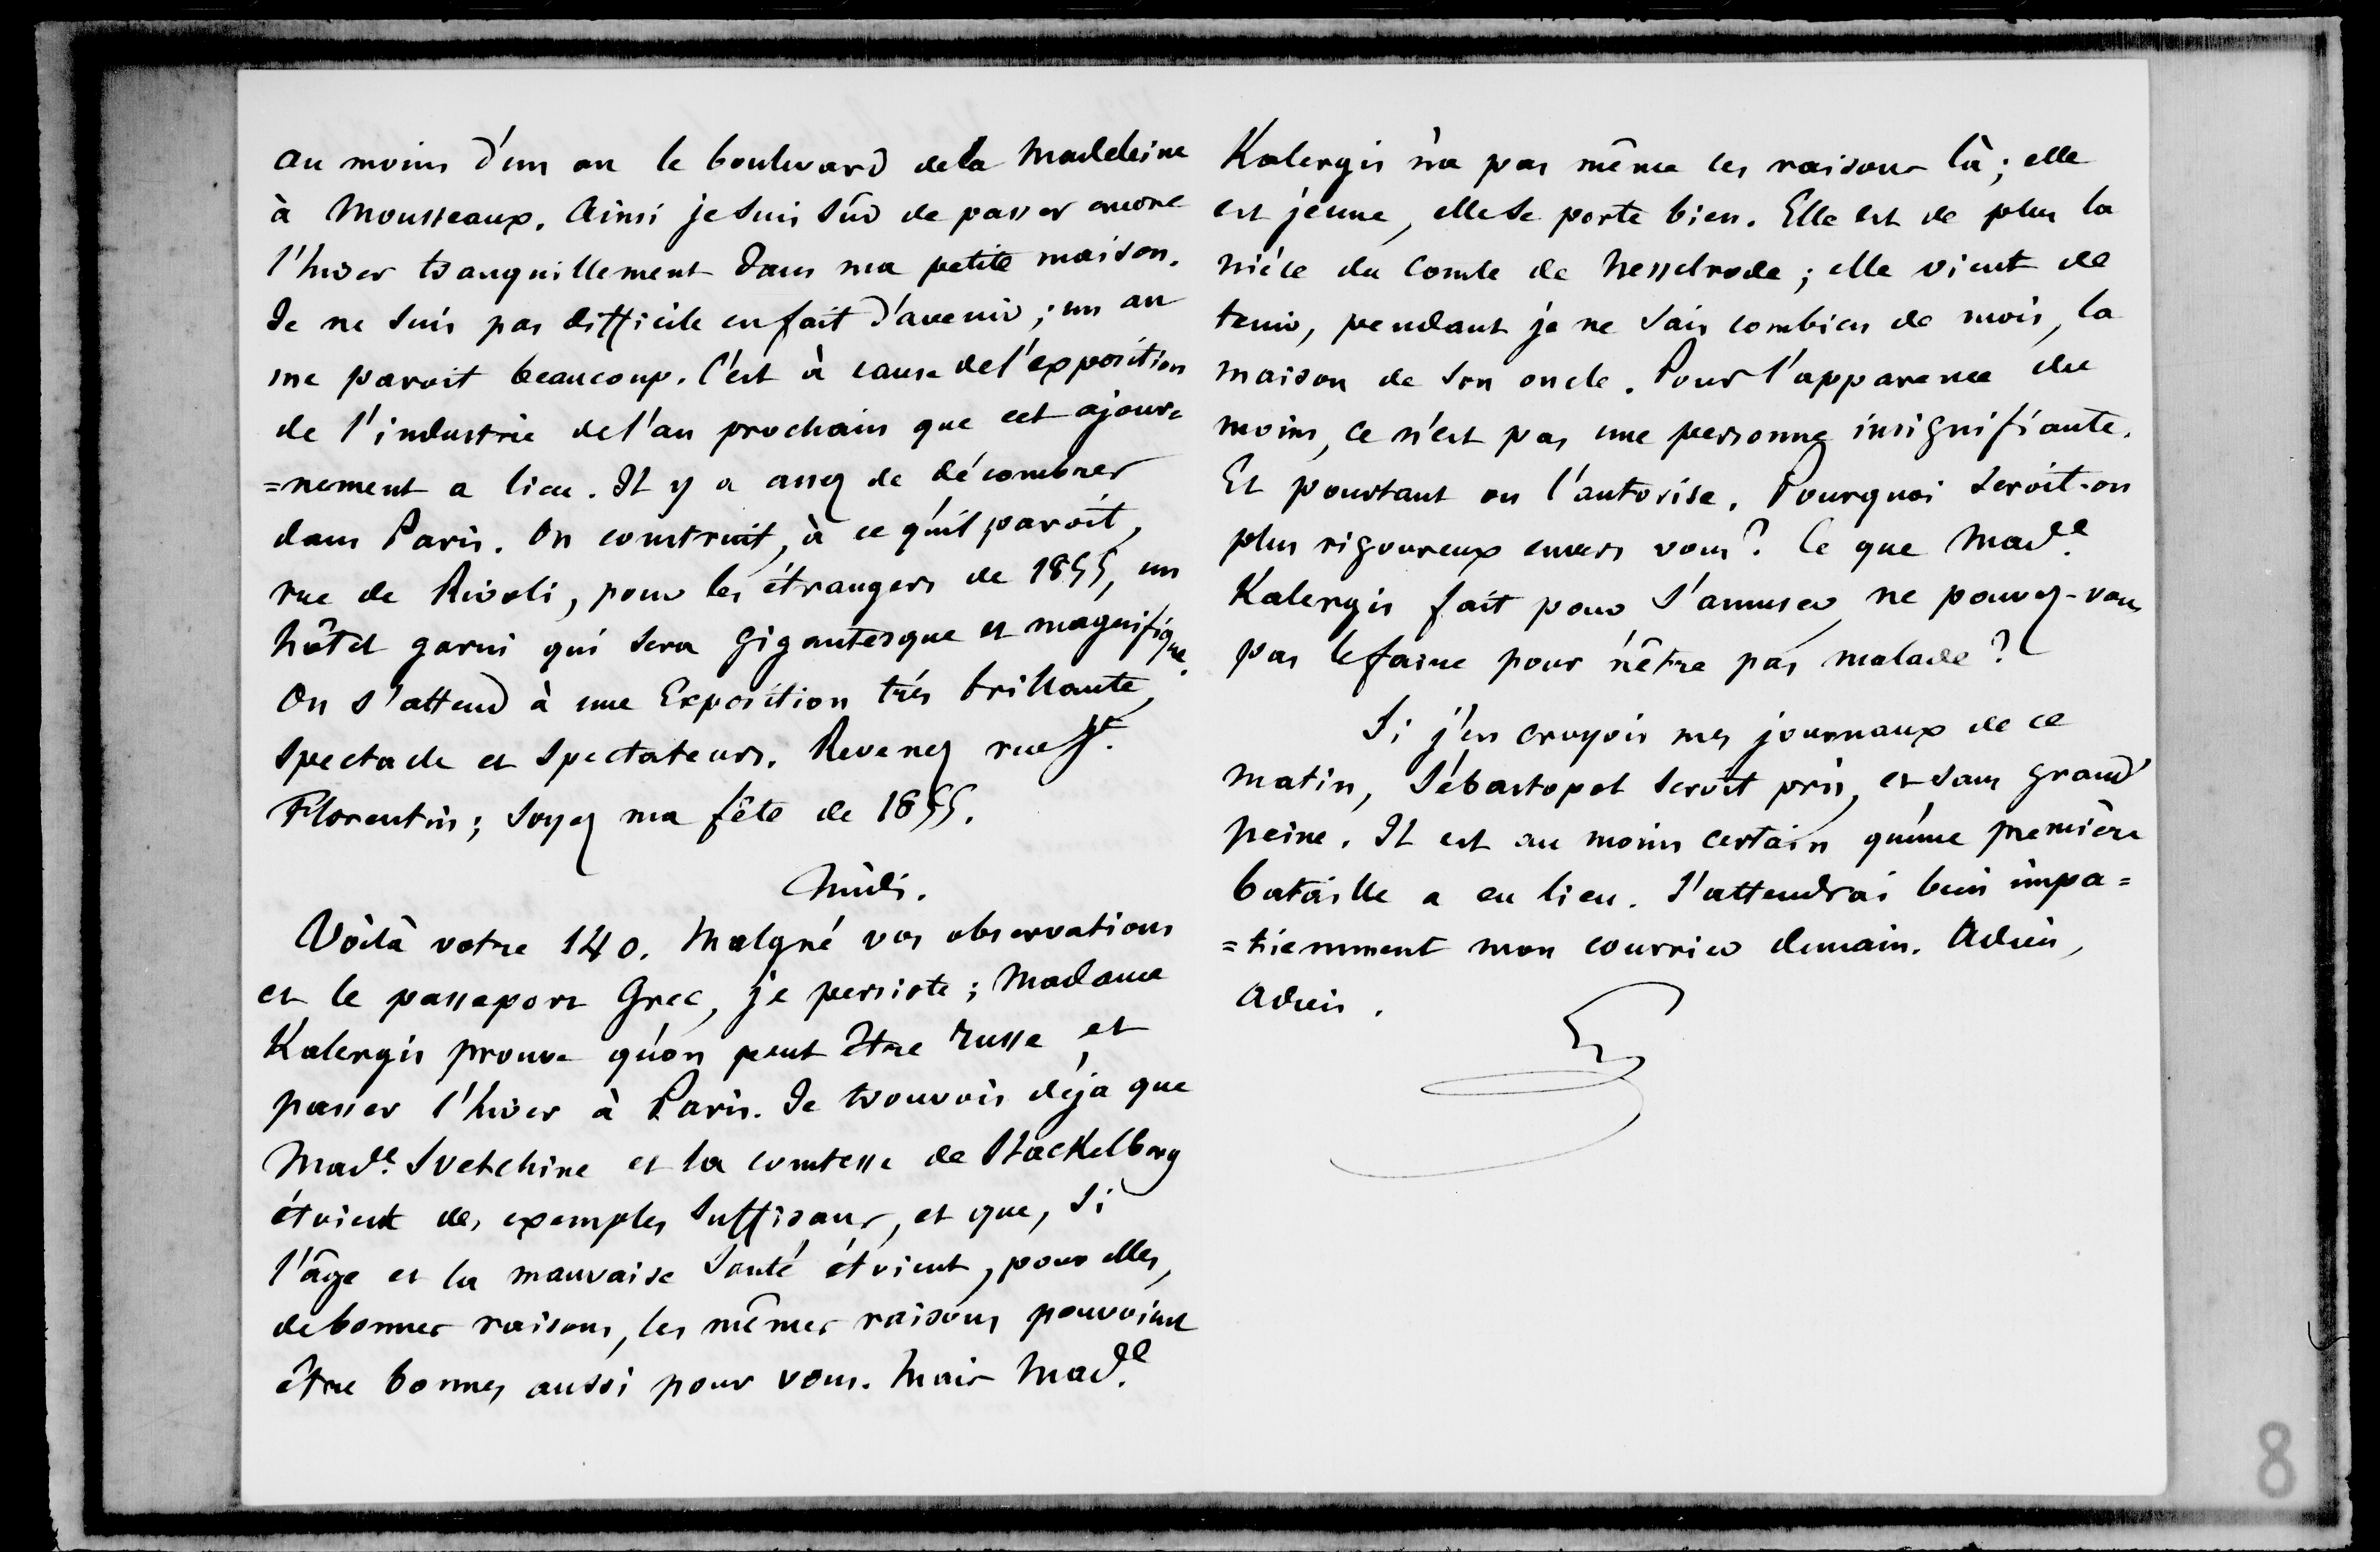 au moins d'un an le boulevard de la Madeleine
à Mousseaux. Ainsi je suis sûr de passer encore
l'hiver tranquillement dans ma petite maison.
Je ne suis pas difficile en fait d'avenir ; un an
me paroit beaucoup. C'est à cause de l'exposition
de l'industrie de l'an prochain que cet ajour=
=nement a lieu. Il y a assez de décombres
dans Paris. On construit, à ce qu'il paroit,
rue de Rivoli, pour les étrangers de 1855, un
hôtel garni qui sera gigantesque et magnifique.
On s'attend à une Exposition très brillante,
spectacle et spectateurs. Revenez rue St.
Florentin ; soyez ma fête de 1855.
Midi.
Voilà votre 140. Malgré vos observations
et le passeport Grec, je persiste ; Madame
Kalergis prouve qu'on peut être russe et
passer l'hiver à Paris. Je trouvois déja que
Made. Svetchine et la comtesse de Stackelberg
étoient des exemples suffisans, et que, si
l'âge et la mauvaise santé étoient, pour elles,
de bonnes raisons, les mêmes raisons pouvoient
être bonnes aussi pour vous. Mais Made.
Kalergis n'a pas même ces raisons là ; elle
est jeune, elle se porte bien. Elle est de plus la
nièce du Comte de Nesselrode ; elle vient de
tenir, pendant je ne sais combien de mois, la
maison de son oncle. Pour l'apparence du
moins, ce n'est pas une personne insignifiante.
Et pourtant on l'autorise. Pourquoi seroit-on
plus rigoureux envers vous ? Ce que Made.
Kalergis fait pour s'amuser, ne pouvez-vous
pas le faire pour n'être pas malade ?
Si j'en croyois mes journaux de ce
matin, Sébastopol seroit pris, et sans grand
peine. Il est au moins certain qu'une première
bataille a eu lieu. J'attendrai bien impa=
=tiemment mon courrier demain. Adieu,
Adieu.
8